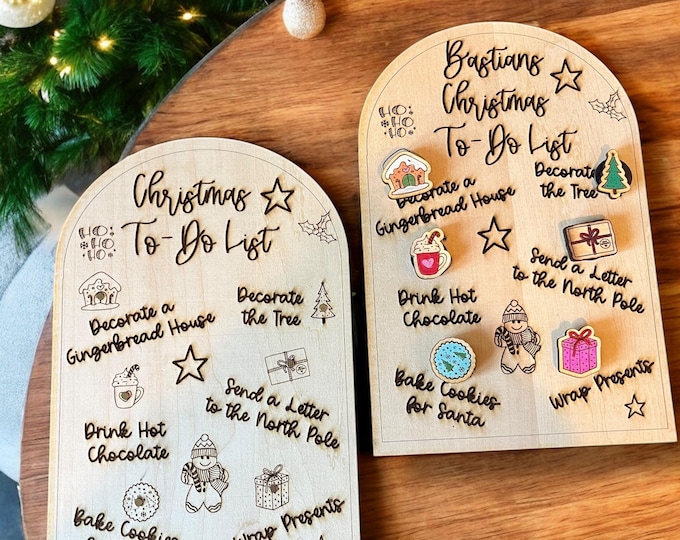 Christmas
To-Do List
HO
HO
HO
Decorate a
Gingerbread House
Decorate
the Tree
Drink Hot
Chocolate
Send a Letter
to the North Pole
Bake Cookies
Wrap Presents
Bastians
Christmas
To-Do List
HO
HO
HO
Decorate a
Gingerbread House
Decorate
the Tree
Drink Hot
Chocolate
Send a Letter
to the North Pole
Bake Cookies
for Santa
Wrap Presents